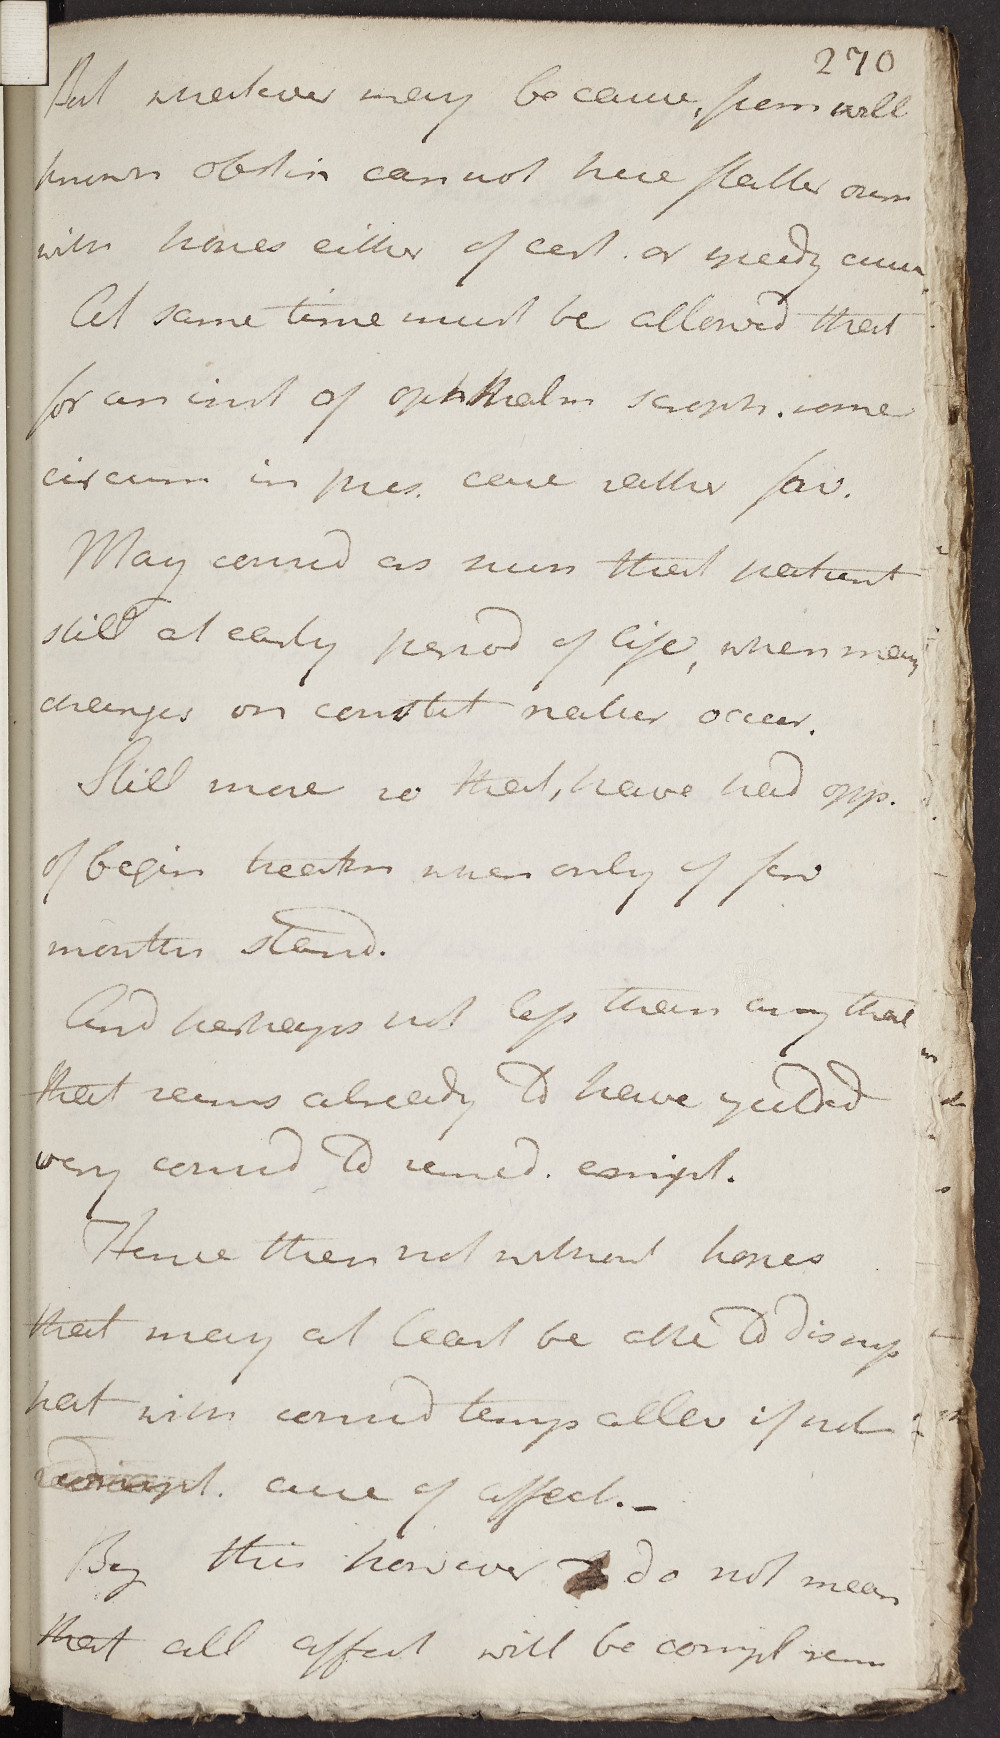 270
But whatever may be cause, from well
known obstin cannot here flatter ourse
with hopes either of cert. or speedy cure.
At same time must be allowed that
for an inst of ophthalm scroph. some
circum in pres. case rather fav.
May consid as such that patient
still at early period of life, when many
changes on constit natur occur.
Still more so that, have had opp.
of begin treatm when only of few
months stand.
And perhaps not less than any that
that seems already to have yielded
very consid to remed. employ.
Hence then not without hopes
that may at least be able to dismiss
pat with consid temp allev if not
compl. cure of affect. –
By this however I do not mean
that all affect will be compl rem